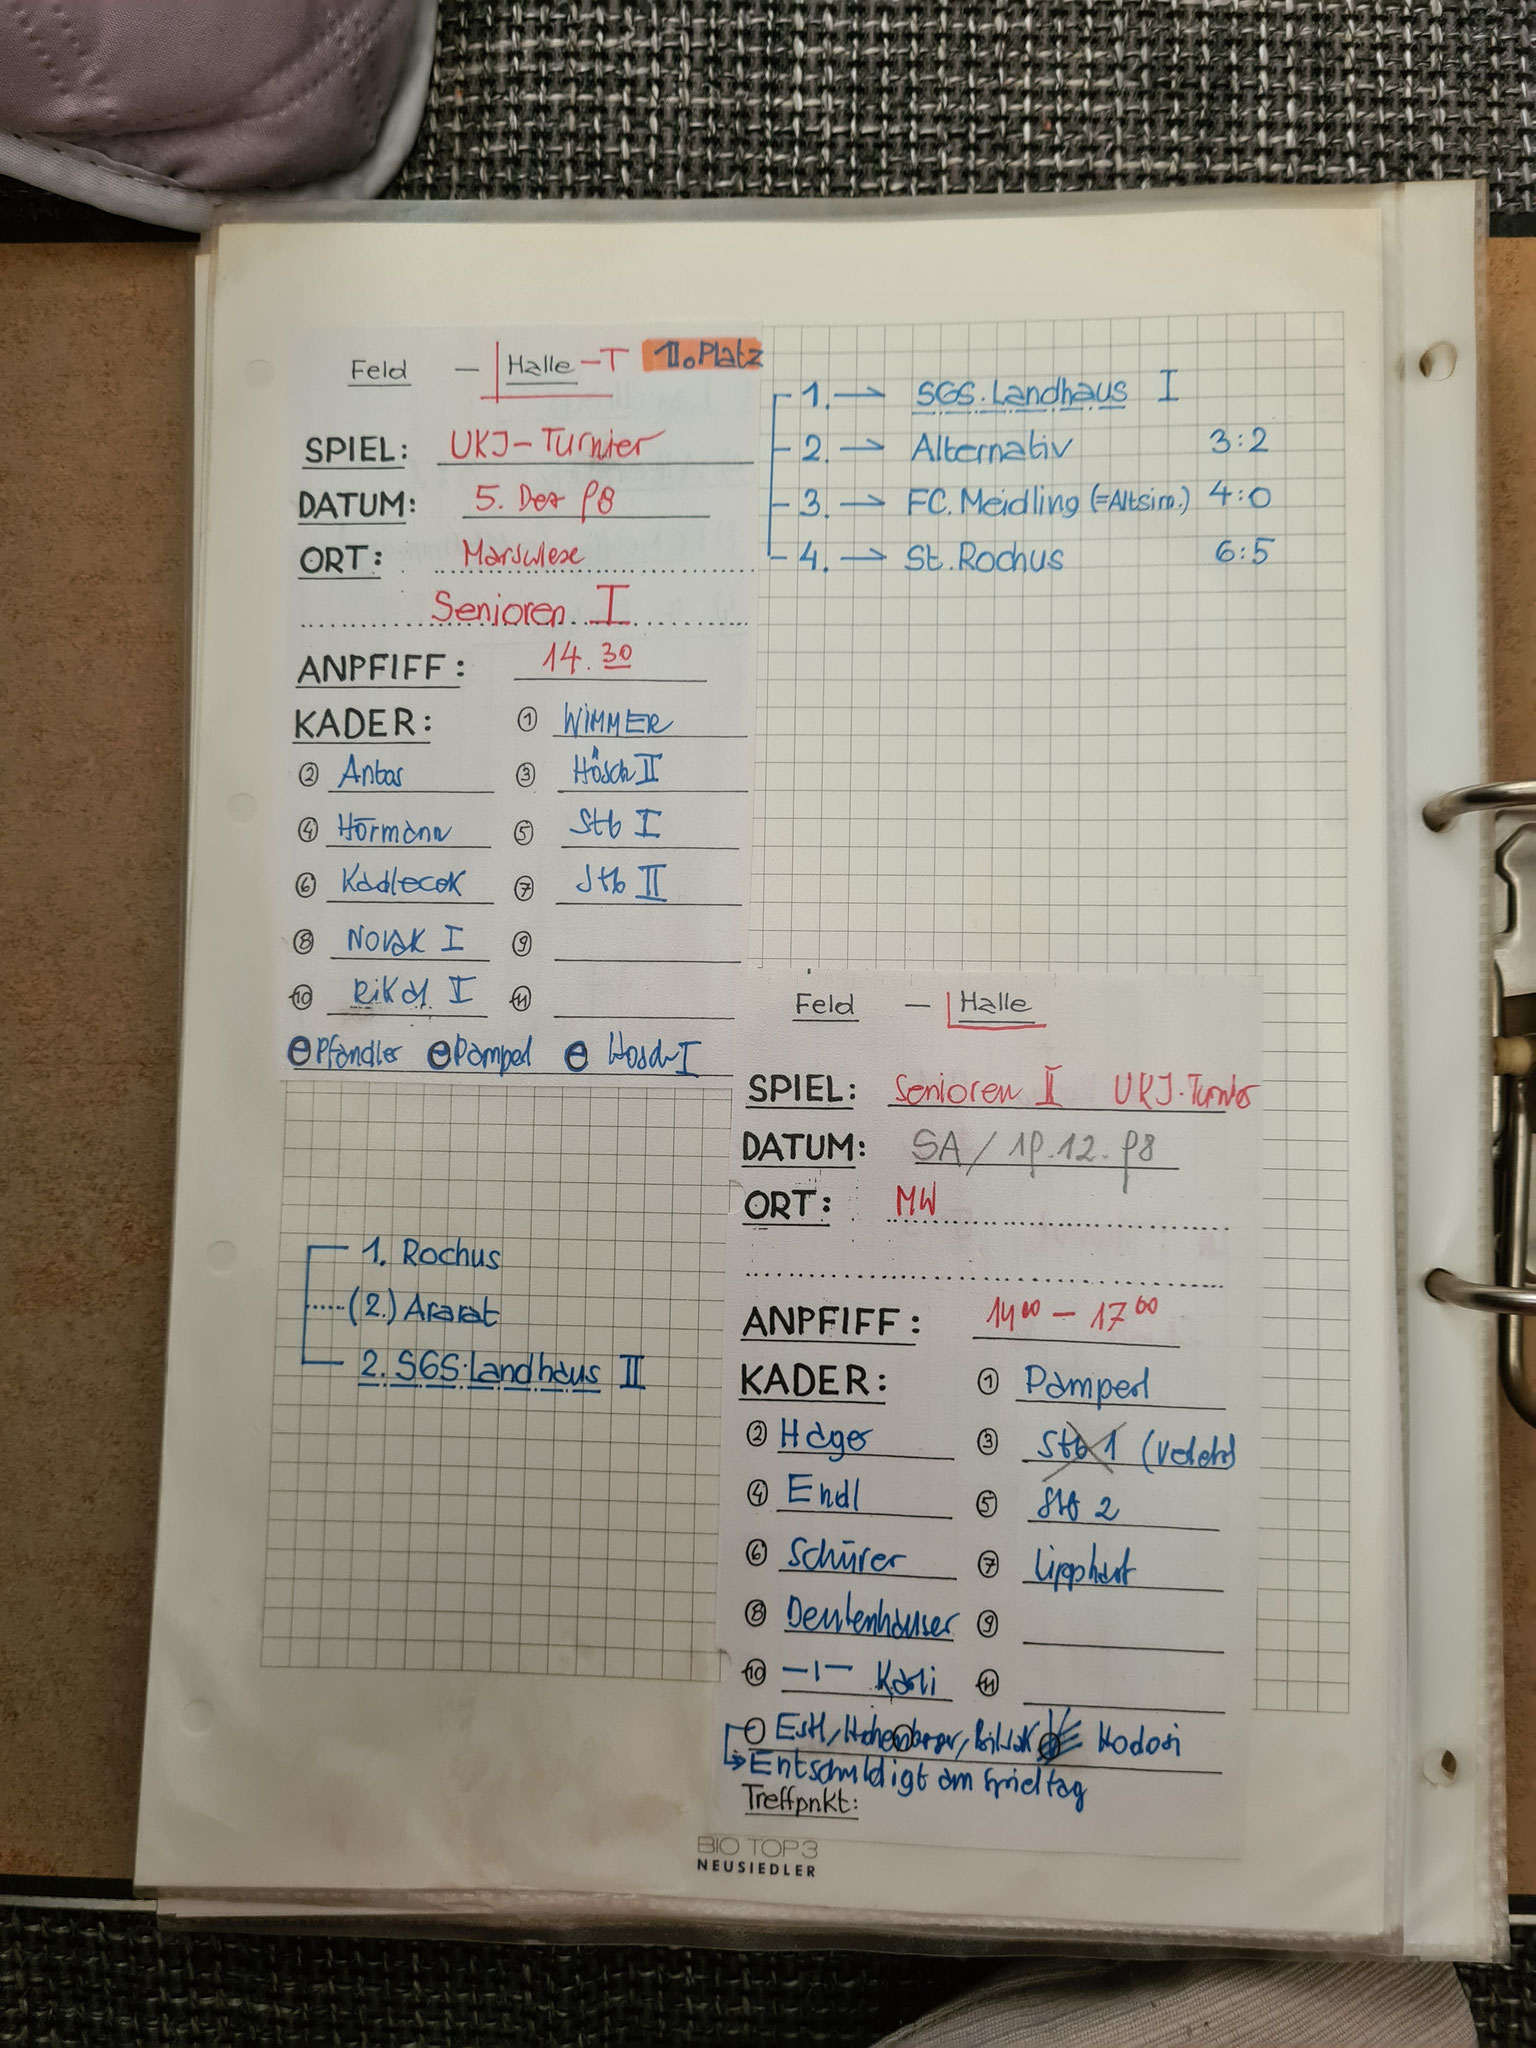 Feld – Halle – T 1. Platz
SPIEL: UKJ-Turnier
DATUM: 5. Dez 98
ORT: Marswiese
Senioren I
ANPFIFF: 14.30
KADER: ① WIMMER
② Antos ③ Hösch II
④ Hörmann ⑤ Stb I
⑥ Kadlecek ⑦ Stb II
⑧ Novak I ⑨
⑩ ⑪
Pfandler Pamperl Hösch I
1. → SGS. Landhaus I
2. → Alternativ 3:2
3. → FC. Meidling (=Altsim.) 4:0
4. → St. Rochus 6:5
1. Rochus
(2.) Ararat
2. SGS. Landhaus II
Feld – Halle
SPIEL: Senioren II UKJ-Turnier
DATUM: SA / 19.12.98
ORT: MW
ANPFIFF: 14⁰⁰ – 17⁰⁰
KADER: ① Pamperl
② Hager ③ Stb 1 (verletzt)
④ Endl ⑤ Stb 2
⑥ Schürer ⑦ Lipphart
⑧ Deutenhauser ⑨
⑩ –ı– Karli ⑪
Estl, Hohenberger, Kodosi
→ Entschuldigt am Spieltag
Treffpnkt:
BIO TOP 3
NEUSIEDLER